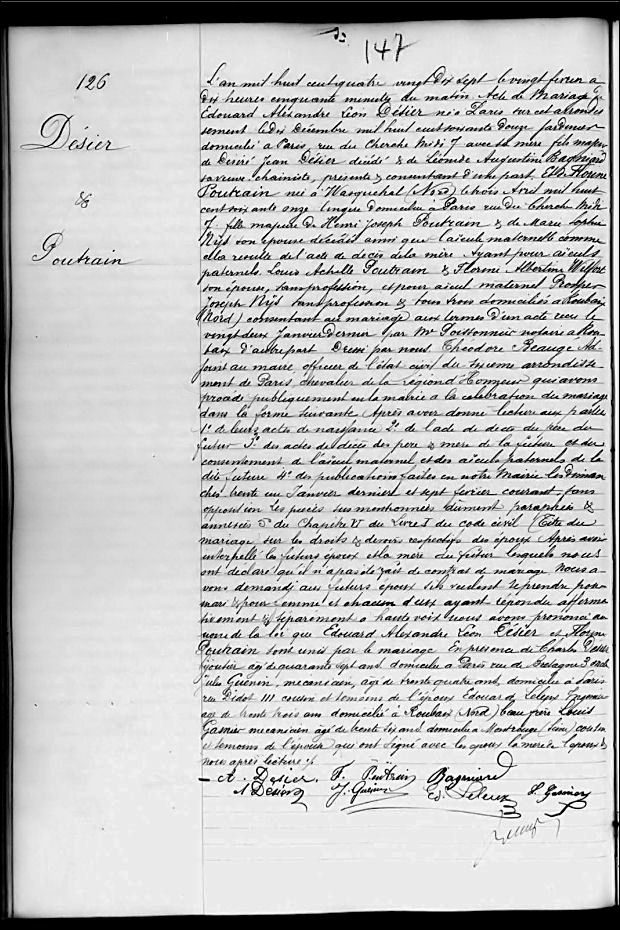 147
126
Désier
&
Poutrain
L'an mil huit cent quatre vingt dix sept le vingt février à
dix heures cinquante minutes du matin Acte de Mariage de
Edouard Alexandre Léon Désier né à Paris sur cet arrondis
sement le dix Décembre mil huit cent soixante douze
domicilié à Paris, rue du Cherche Midi 7 avec sa mère fils majeur
de Désiré Jean Désier décédé & de Léonide Augustine Bagniard
sa veuve chainiste, présente & consentant d'une part. Et Florine
Poutrain née à Wasquehal (Nord) le trois Avril mil huit
cent soixante onze lingère domiciliée à Paris rue du Cherche Midi
7. fille majeure de Henri Joseph Poutrain & de Marie Sophie
Nijs son épouse décédés ainsi que l'aïeule maternelle comme
elle résulte de l'acte de décès de la mère. Ayant pour aïeuls
paternels Louis Achille Poutrain & Florine Albertine
son épouse, sans profession, et pour aïeul maternel
Joseph Nijs sans profession & tous trois domiciliés à Roubaix
(Nord) consentant au mariage aux termes d'un acte reçu le
vingt deux Janvier dernier par Me Poissonnier notaire à Rou
baix d'autre part Dressé par nous Théodore Beaugé Ad
joint au maire officier de l'état civil du sixième arrondisse
ment de Paris, chevalier de la Légion d'Honneur qui avons
procédé publiquement en la mairie à la célébration du mariage
dans la forme suivante Après avoir donné lecture aux parties
1° de leurs actes de naissance 2° de l'acte de décès du père du
futur 3° des actes de décès des père & mère de la future et du
consentement de l'aïeul maternel et des aïeuls paternels de la
dite future 4° des publications faites en notre Mairie les Diman
ches trente un Janvier dernier et sept février courant, sans
opposition les pièces sus mentionnées dûment paraphées &
annexées 5° du Chapitre VI du Livre I du code civil (Titre du
mariage) sur les droits & devoirs respectifs des époux Après avoir
interpellé les futurs époux et la mère du futur lesquels nous
ont déclaré qu'il n'a pas été fait de contrat de mariage Nous a
vons demandé aux futurs époux s'ils veulent se prendre pour
mari & pour femme et chacun d'eux ayant répondu affirma
tivement & séparément à haute voix nous avons prononcé au
nom de la loi que Edouard Alexandre Léon Désier et Florine
Poutrain sont unis par le mariage En présence de Charles Désier
bijoutier âgé de quarante sept ans domicilié à Paris rue de Bretagne 3 oncle
Jules Guénin, mécanicien, âgé de trente quatre ans, domicilié à Paris
rue Didot 111 cousin et témoins de l'époux Edouard Leleux
âgé de trente trois ans domicilié à Roubaix (Nord) beau frère Louis
mécanicien âgé de trente six ans domicilié à Montrouge (Seine) cousin
et témoins de l'épouse qui ont signé avec les époux la mère de l'époux &
nous après lecture
A. Désier. F. Poutrain Bagniard
Désier J. Guénin Ed. Leleux